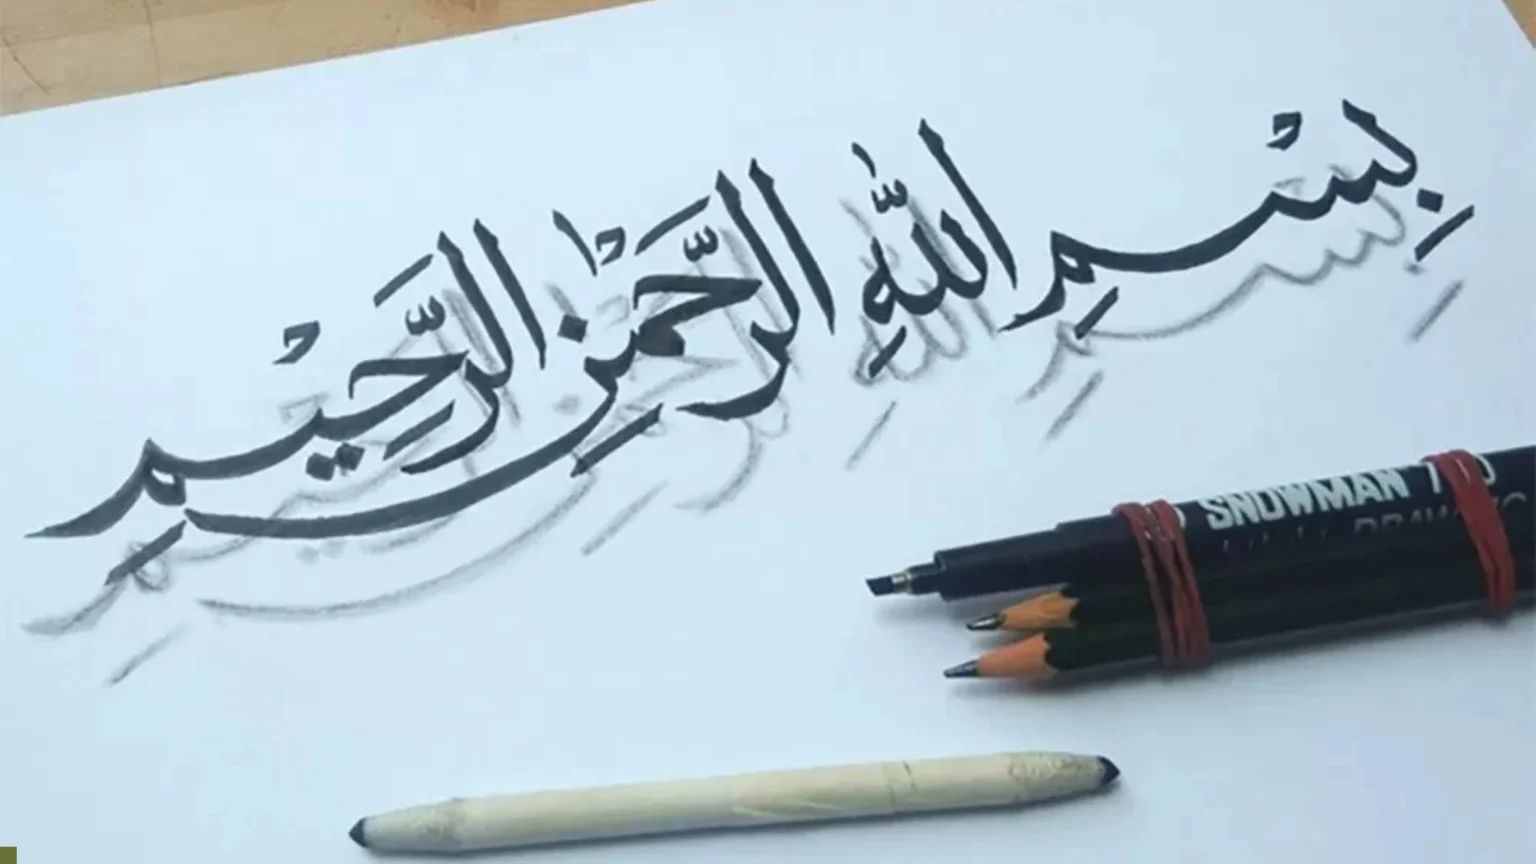 بِسْمِ اللَّهِ الرَّحْمَٰنِ الرَّحِيْمِ
SNOWMAN